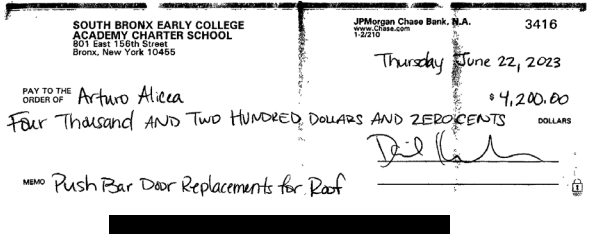 SOUTH BRONX EARLY COLLEGE
ACADEMY CHARTER SCHOOL
801 East 156th Street
Bronx, New York 10455
JPMorgan Chase Bank, N.A.
www.Chase.com
1-2/210
3416
Thursday June 22, 2023
PAY TO THE
ORDER OF Arturo Alicea
$ 4,200.00
Four Thousand AND TWO HUNDRED DOLLARS AND ZERO CENTS DOLLARS
MEMO Push Bar Door Replacements for Roof